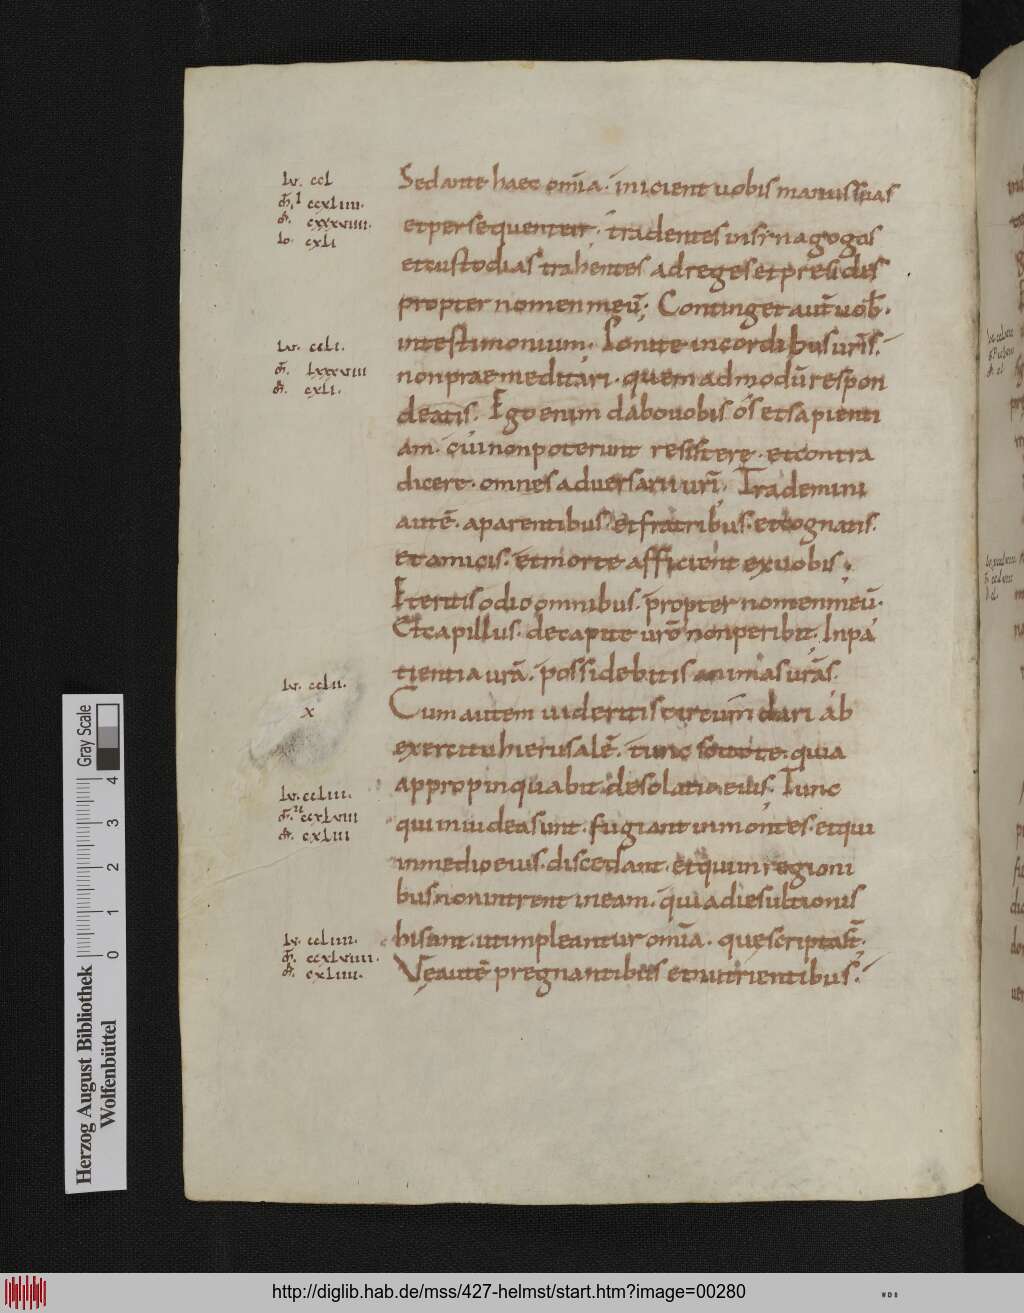 lv. ccl
m̄.l ccxliiii.
m̄. cxxxviiii.
Io. cxli
Sed ante haec om̄ia. inicient uobis manus suas
et persequentur. tradentes in synagogas
et custodias trahentes ad reges et presides
propter nomen meū; Continget aut̄ uob̄.
lv. ccli.
m̄. lxxxviii
m̄. cxli.
in testimonium. Ponite in cordibus ur̄is.
non praemeditari. quem ad modū respon
deatis; Ego enim dabo uobis os et sapienti
am. cui non poterunt resistere. et contra
dicere. omnes aduersarii ur̄i; Trademini
autē. a parentibus. et fratribus. et cognatis.
et amicis. et morte afficient ex uobis;
Et eritis odio omnibus. propter nomen meū.
Et capillus. de capite ur̄o non peribit; In pa
tientia ur̄a. possidebitis animas ur̄as.
lv. cclii.
x
Cum autem uideritis circumdari ab
exercitu hierusalē. tunc scitote. quia
appropinquabit desolatio eius; Tunc
lv. ccliii.
m̄. ccxlviii
m̄. cxliii
qui in iudea sunt. fugiant in montes. et qui
in medio eius. discedant. et qui in regioni
bus. non intrent in eam. quia dies ultionis
lv. ccliiii.
m̄. ccxlviiii.
m̄. cxliiii.
hi sunt. ut impleantur om̄ia. que scripta st̄.
Vę autē pregnantibus et nutrientibus.
Gray Scale
4 3 2 1 0
Herzog August Bibliothek
Wolfenbüttel
http://diglib.hab.de/mss/427-helmst/start.htm?image=00280